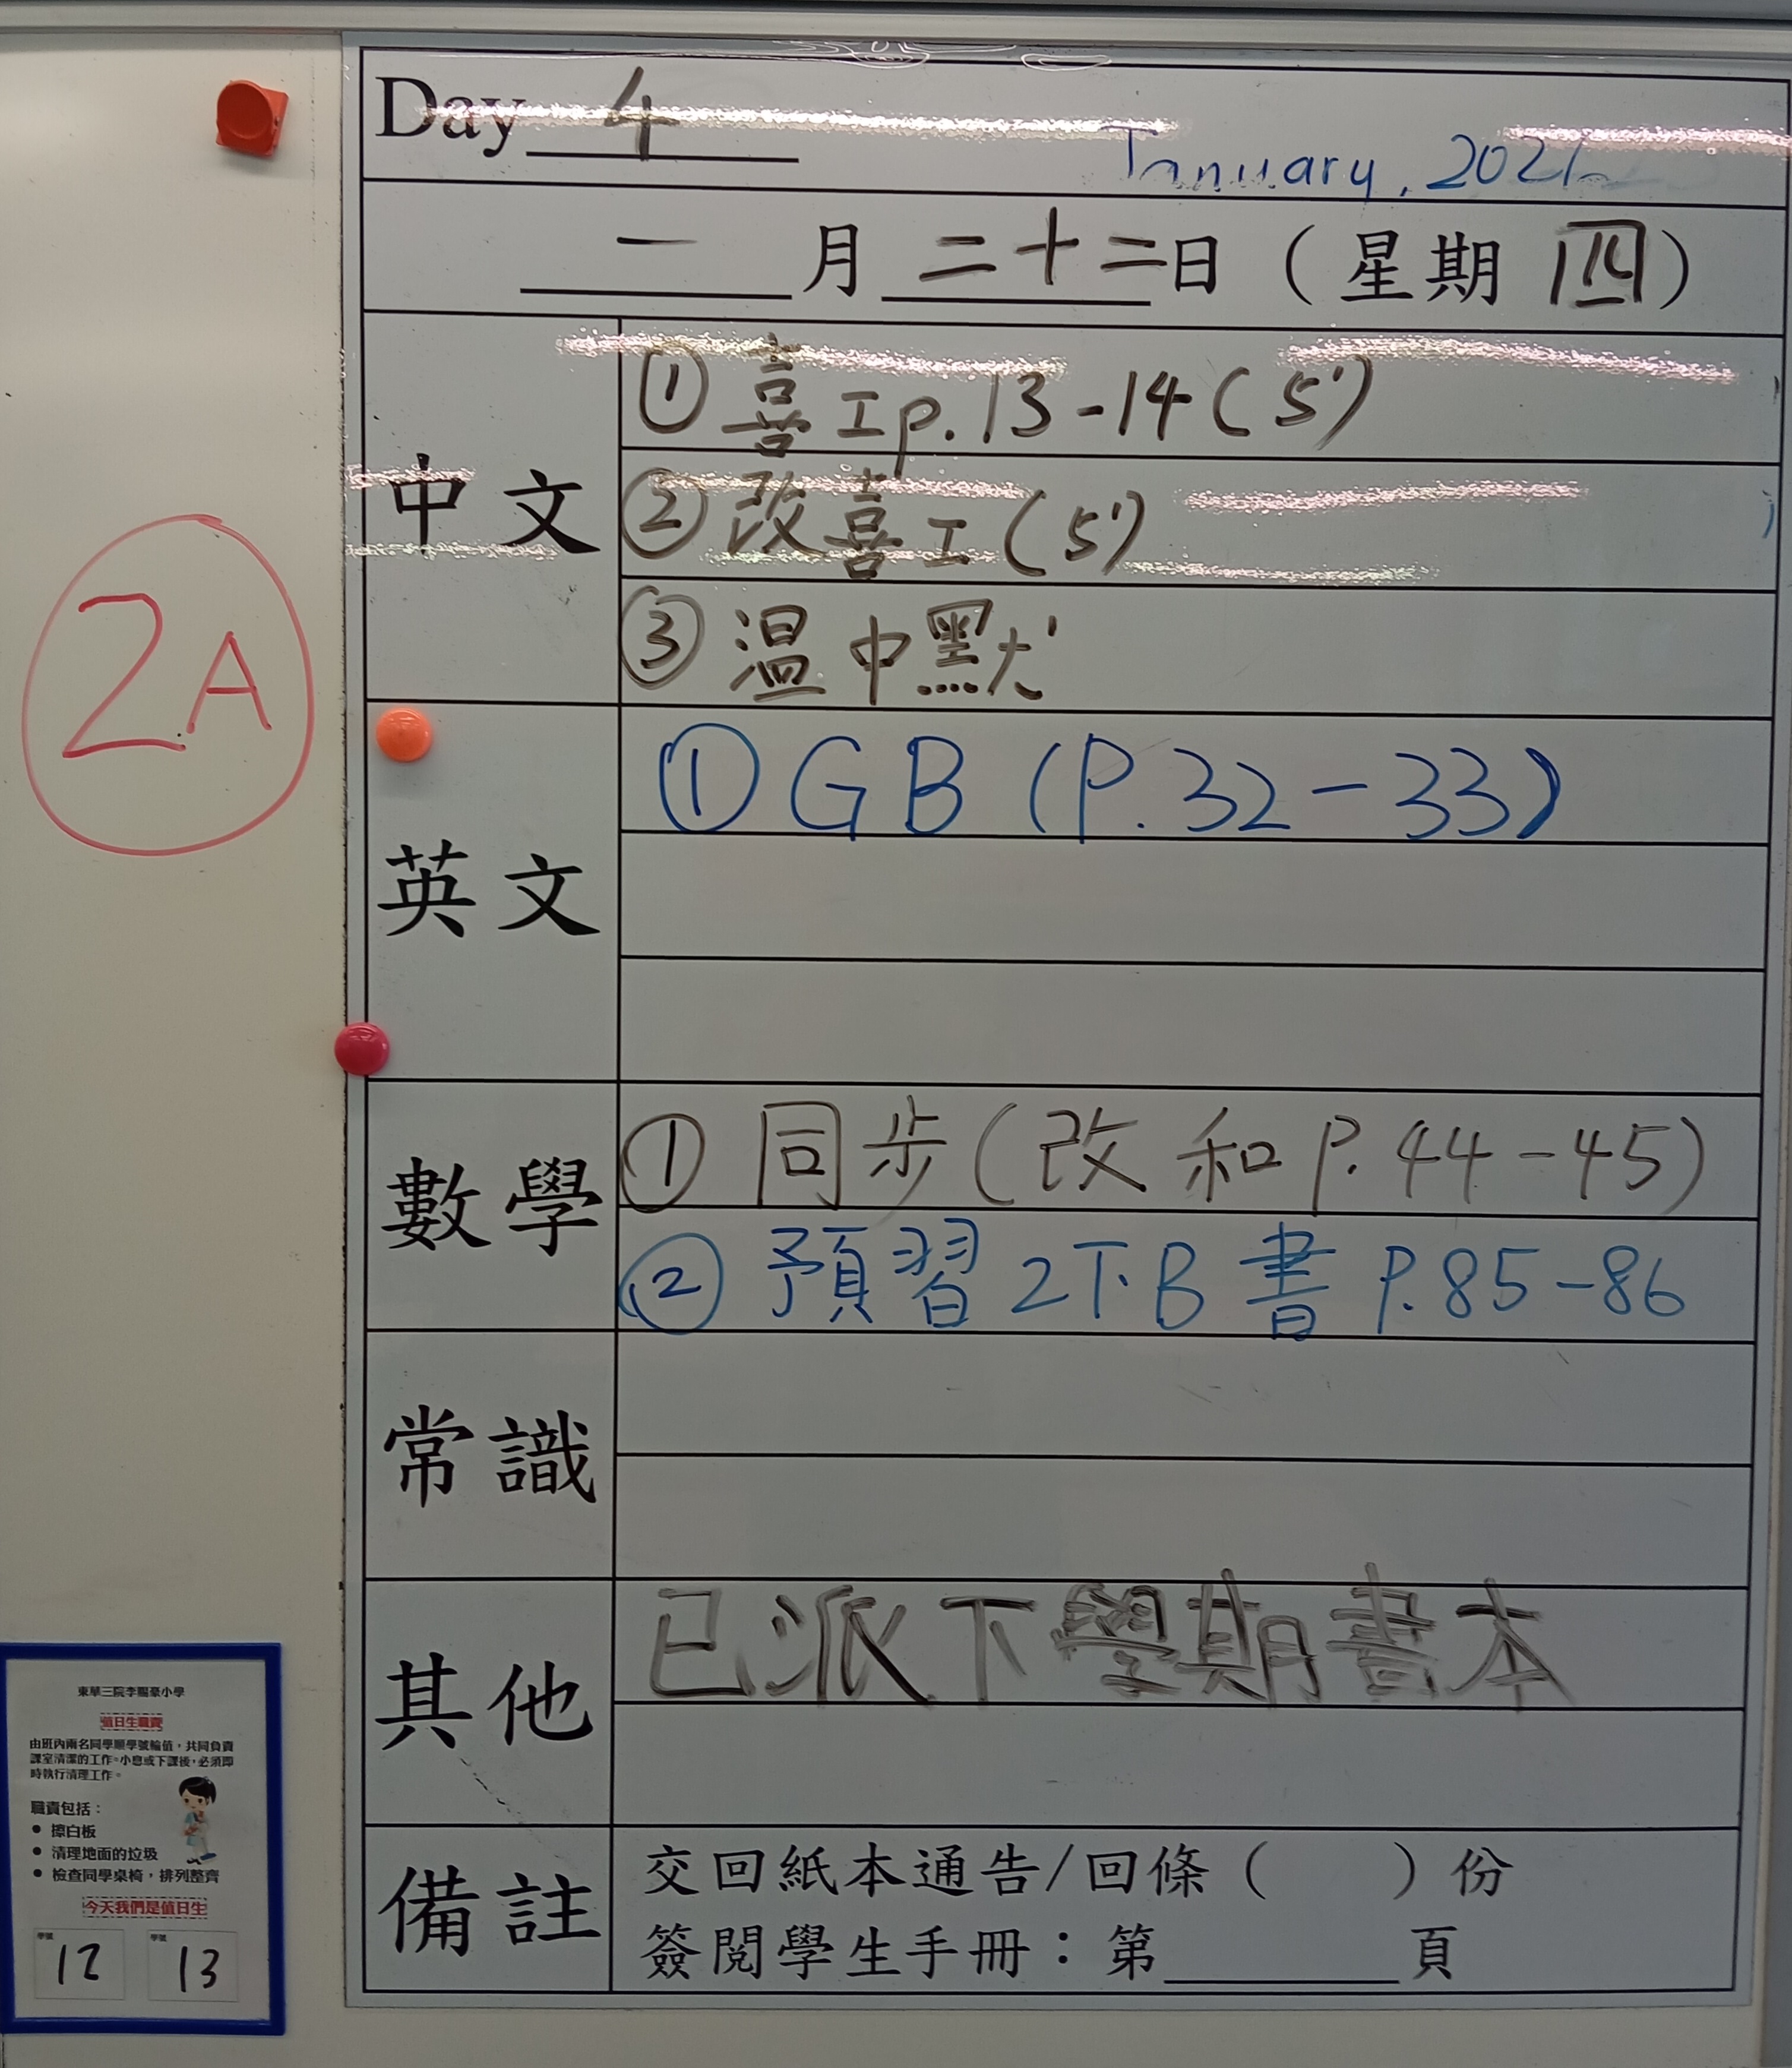 Day 4
January, 202
一 月 二十二日 (星期 四)
中文
① 喜工p.13-14(5')
② 改喜工(5')
③ 溫中默
英文
① GB (P.32-33)
數學
① 同步(改和P.44-45)
② 預習2下B書P.85-86
常識
其他
已派下學期書本
備註
交回紙本通告/回條( )份
簽閱學生手冊:第______頁
2A
東華三院李賜豪小學
值日生職責
由班內兩名同學順學號輪值,共同負責
課室清潔的工作。小息或下課後,必須即
時執行清理工作。
職責包括:
• 擦白板
• 清理地面的垃圾
• 檢查同學桌椅,排列整齊
今天我們是值日生
學號 學號
12 13